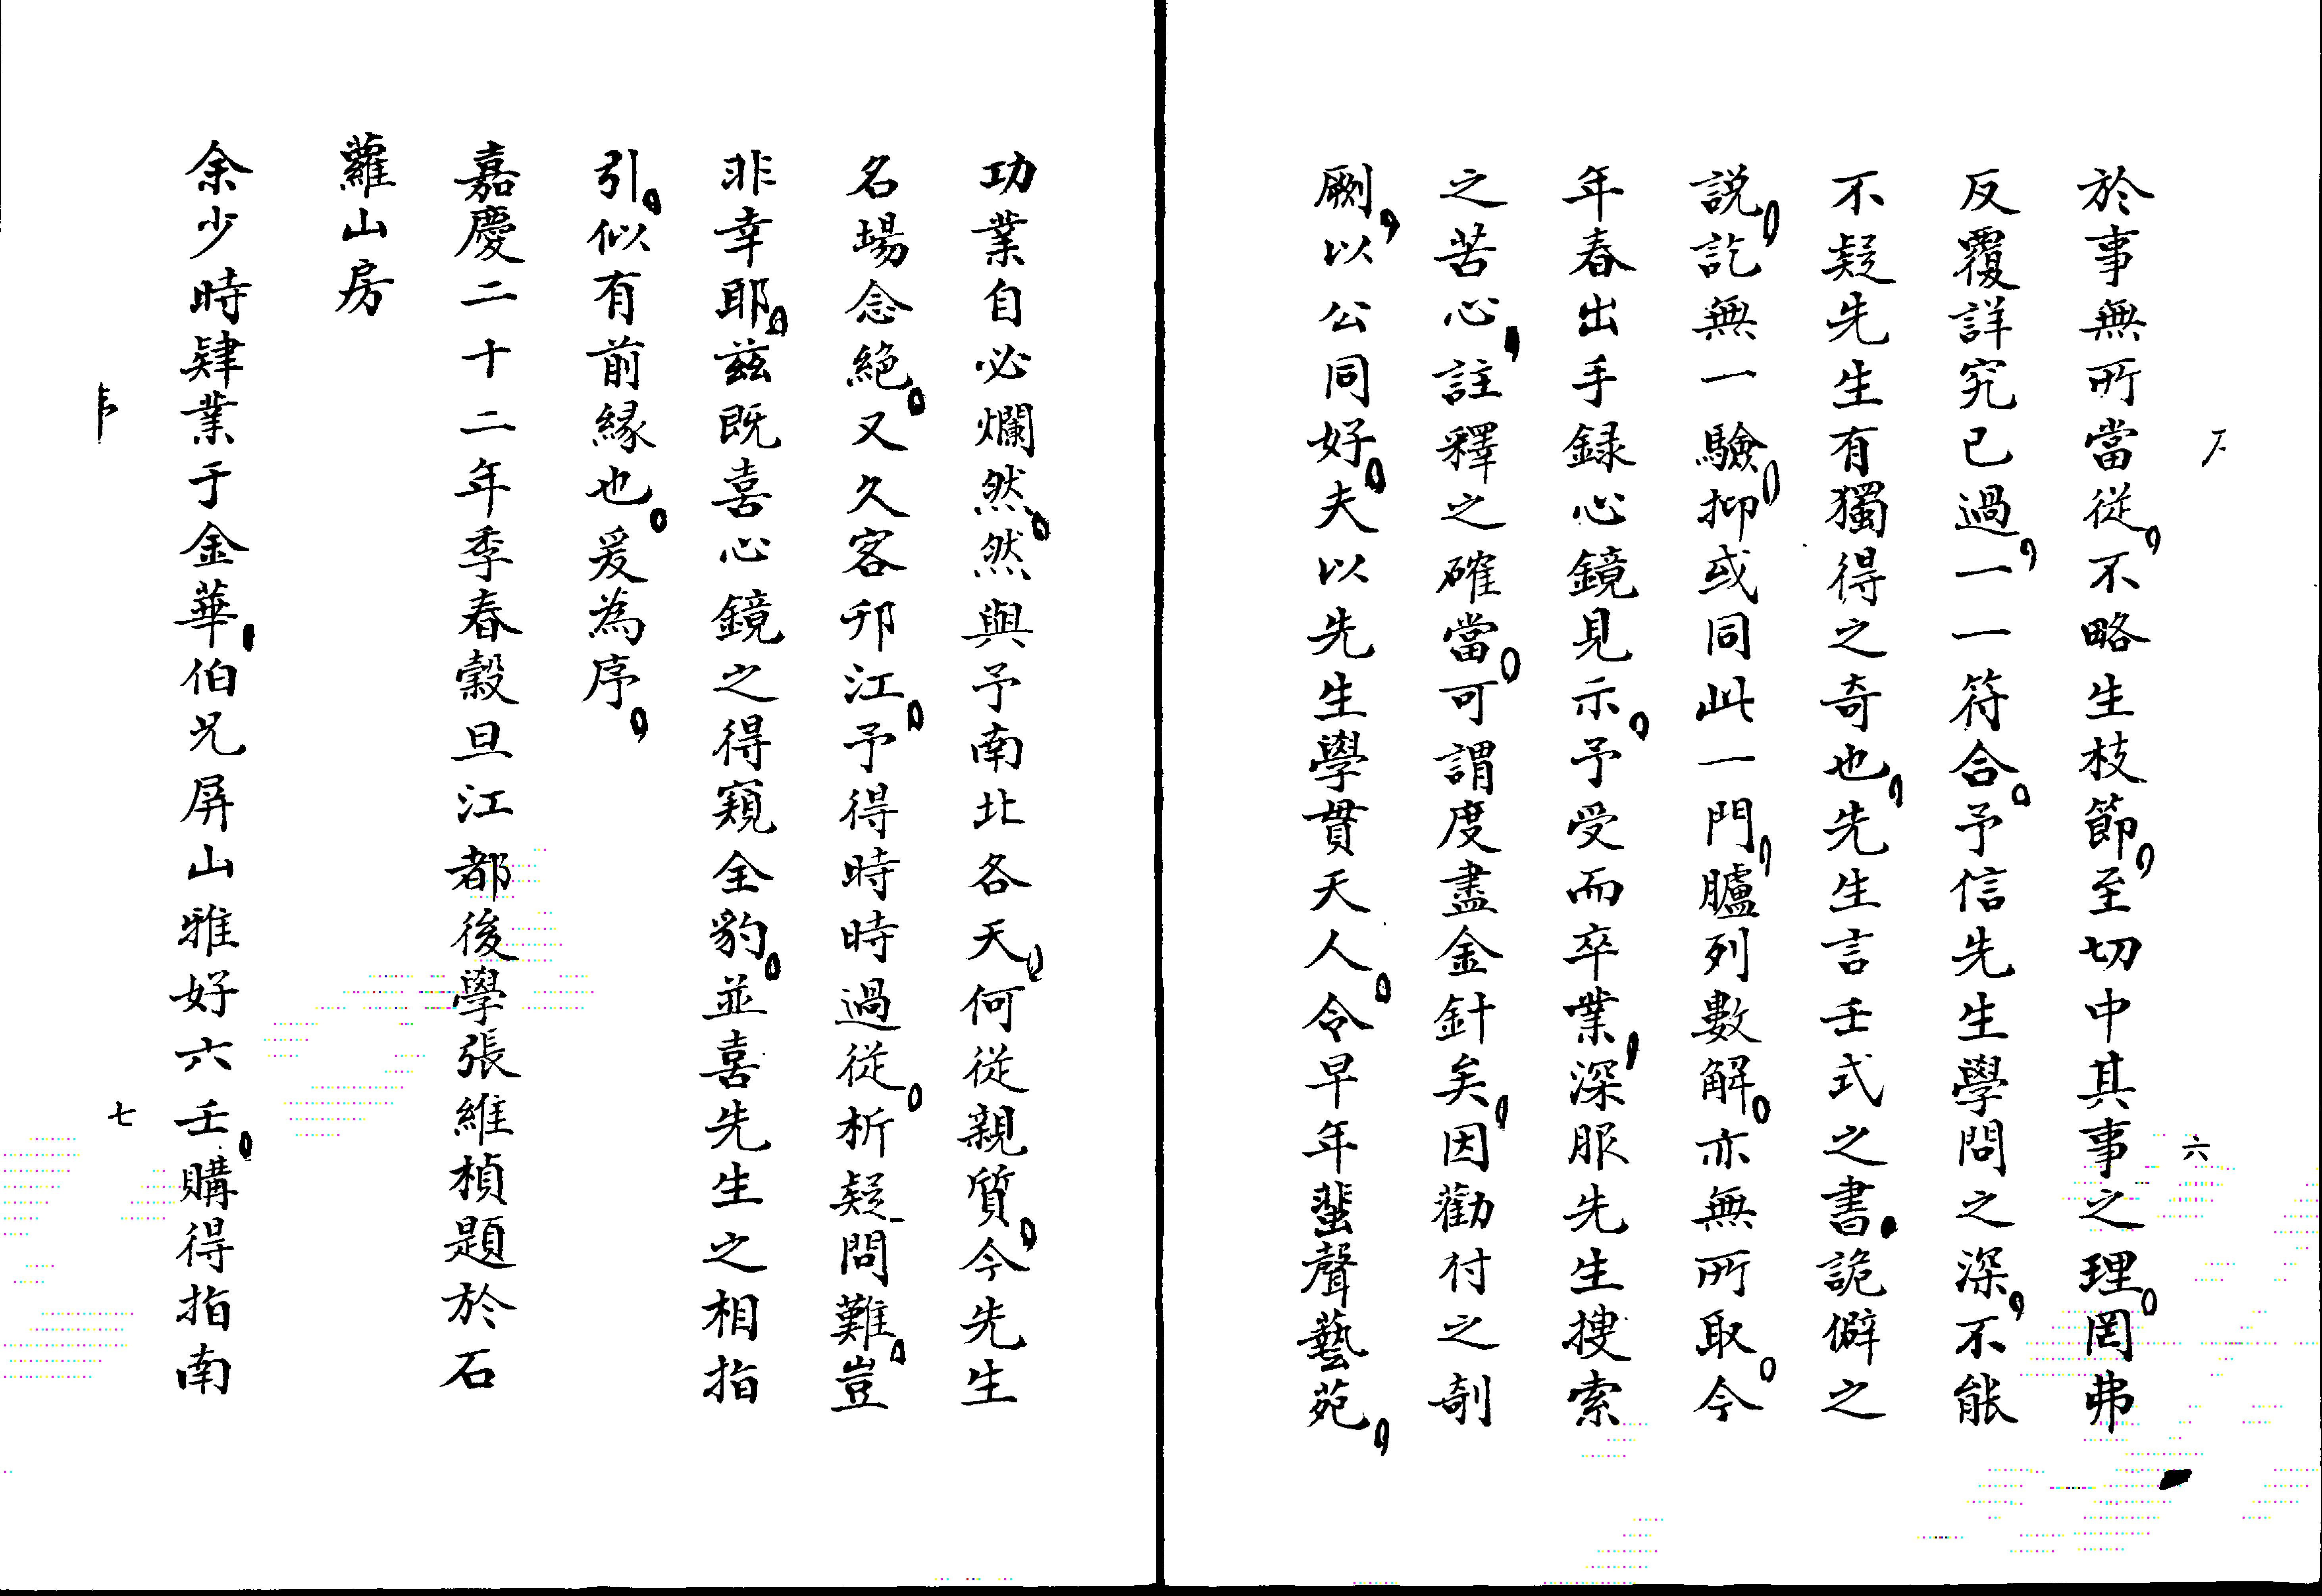 於事無所當從不略生枝節至切中其事之理罔弗
反覆詳究已過一一符合予信先生學問之深不能
不疑先生有獨得之奇也先生言壬式之書詭僻之
説訖無一驗抑或同此一門臚列數解亦無所取今
年春出手録心鏡見示予受而卒業深服先生搜索
之苦心註釋之確當可謂度盡金針矣因勸付之剞
劂以公同好夫以先生學貫天人令早年蜚聲藝苑
六
功業自必爛然然與予南北各天何從親質今先生
名場念絶又久客邗江予得時時過從析疑問難豈
非幸耶兹既喜心鏡之得窺全豹並喜先生之相指
引似有前緣也爰為序
嘉慶二十二年季春穀旦江都後學張維楨題於石
蘿山房
余少時肄業于金華伯兄屏山雅好六壬購得指南
七